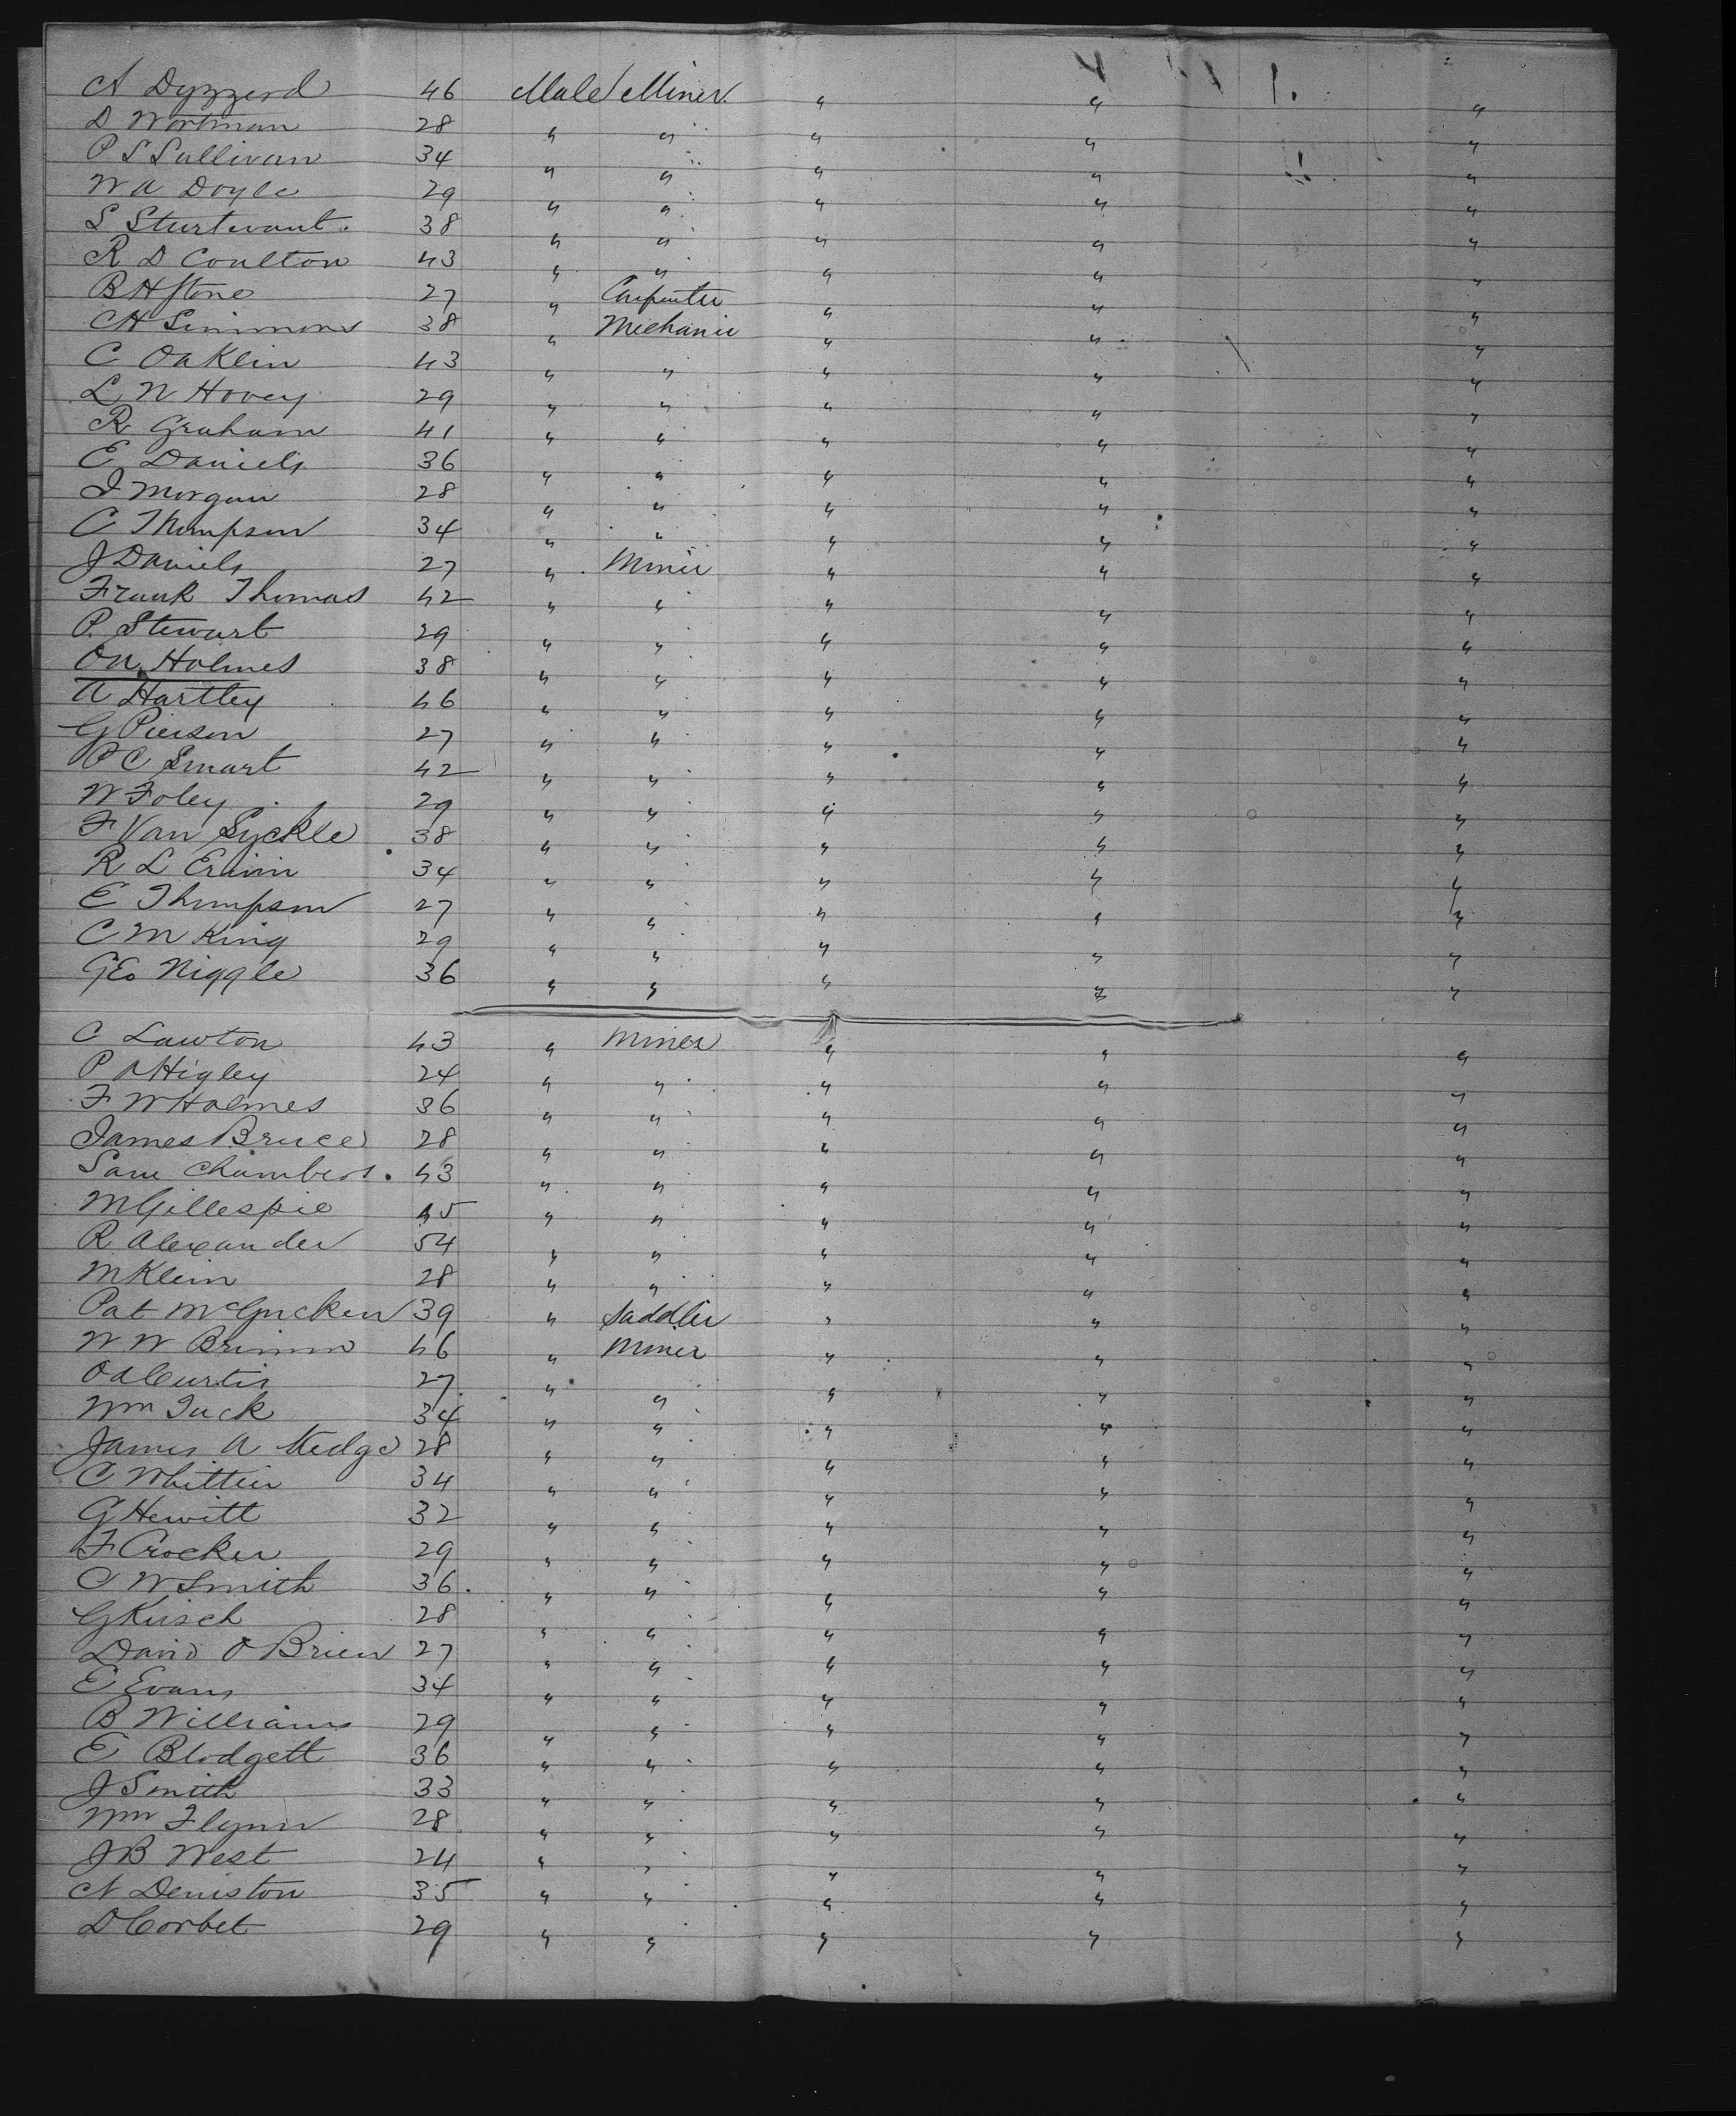 A Dyzzerd 46 Male Miner " " "
D Wortman 28 " " " " "
P S Sullivan 34 " " " " "
W A Doyle 29 " " " " "
S Sturtevant. 38 " " " " "
R D Coulton 43 " " " " "
B H Stone 27 " Carpenter " " "
C H Simmons 38 " Mechanic " " "
C Oaklin 43 " " " " "
L N Hovey 29 " " " " "
R Graham 41 " " " " "
E Daniels 36 " " " " "
J Morgan 28 " " " " "
C Thompson 34 " " " " "
J Daniels 27 " Miner " " "
Frank Thomas 42 " " " " "
P. Stewart 29 " " " " "
O A Holmes 38 " " " " "
A Hartley 46 " " " " "
G Pierson 27 " " " " "
P C Smart 42 " " " " "
W Foley 29 " " " " "
F Van Syckle 38 " " " " "
R L Erwin 34 " " " " "
E Thompson 27 " " " " "
C M King 29 " " " " "
Geo Niggle 36 " " " " "
C Lawton 43 " Miner " " "
P A Higley 24 " " " " "
F W Holmes 36 " " " " "
James Bruce 28 " " " " "
Sam Chambers. 43 " " " " "
M Gillespie 45 " " " " "
R Alexander 54 " " " " "
M Klein 28 " " " " "
Pat McGucken 39 " Saddler " " "
W W Brimm 46 " Miner " " "
O A Curtis 27 " " " " "
Wm Tuck 34 " " " " "
James A 28 " " " " "
C Whittier 34 " " " " "
G Hewitt 32 " " " " "
F Crocker 29 " " " " "
C W Smith 36 " " " " "
G Kirsch 28 " " " " "
David O Brien 27 " " " " "
E Evans 34 " " " " "
B Williams 29 " " " " "
E Blodgett 36 " " " " "
J Smith 33 " " " " "
Wm Flynn 28 " " " " "
J B West 24 " " " " "
N Deniston 35 " " " " "
D Corbet 29 " " " " "